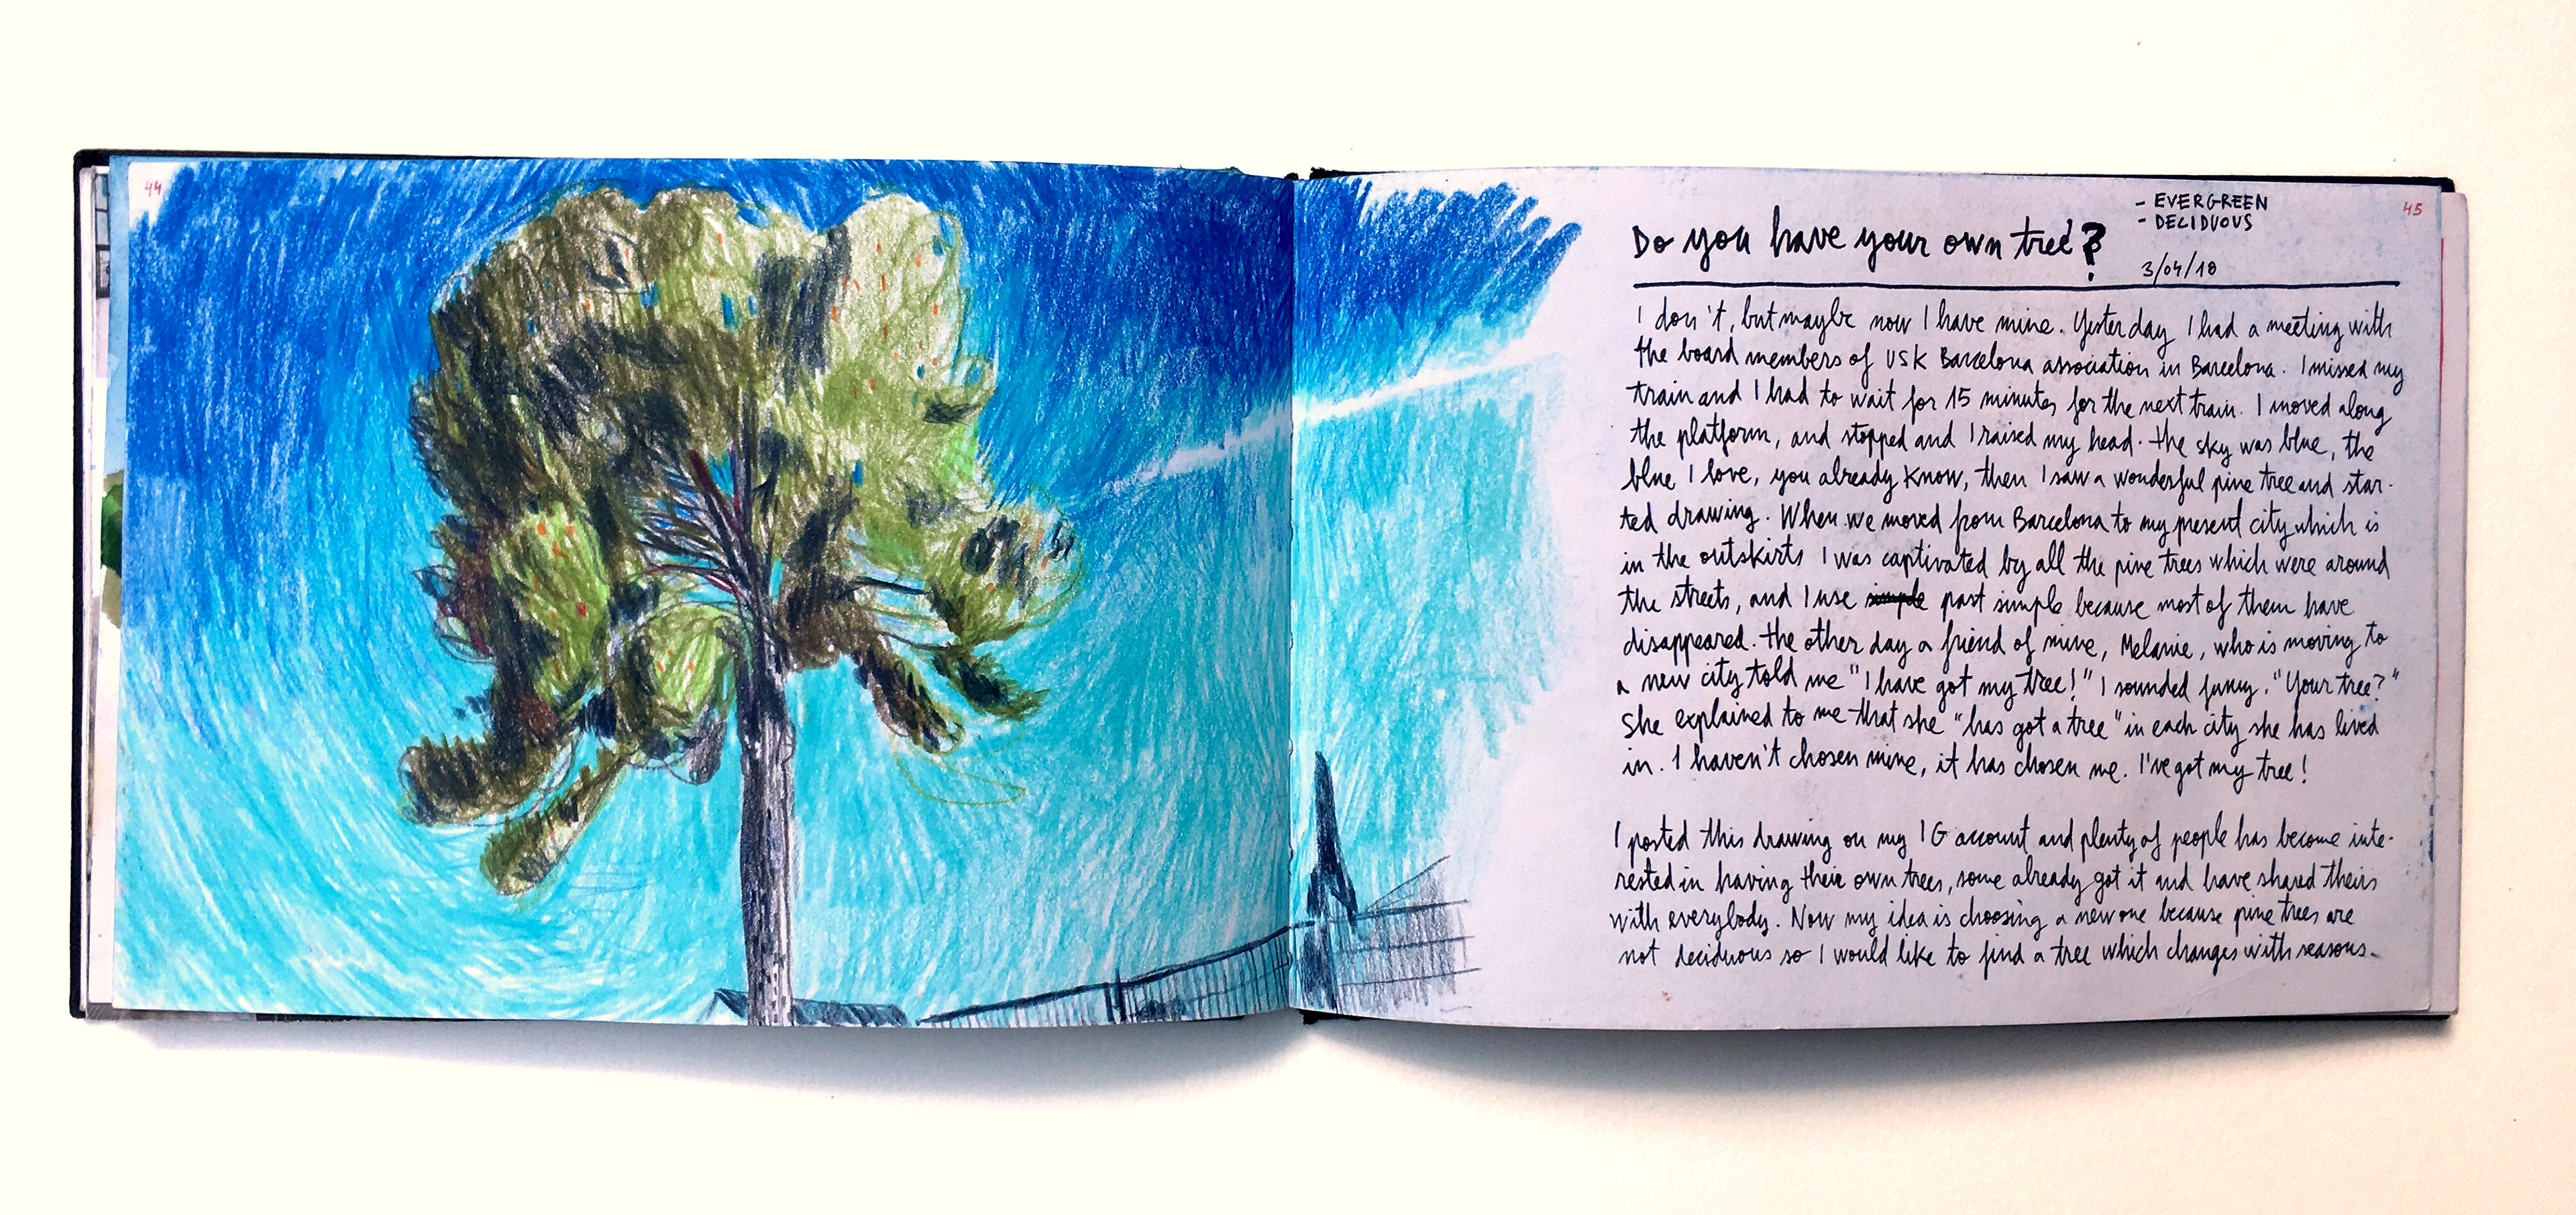 44
Do you have your own tree?
- EVERGREEN
- DECIDUOUS
3/04/18
45
I don't, but maybe now I have mine. Yesterday I had a meeting with
the board members of USK Barcelona association in Barcelona. I missed my
train and I had to wait for 15 minutes for the next train. I moved along
the platform, and stopped and I raised my head. The sky was blue, the
blue I love, you already know, then I saw a wonderful pine tree and star-
ted drawing. When we moved from Barcelona to my present city which is
in the outskirts I was captivated by all the pine trees which were around
the streets, and I use simple past simple because most of them have
disappeared. The other day a friend of mine, Melanie, who is moving to
a new city told me "I have got my tree!" I sounded funny. "Your tree?"
She explained to me that she "has got a tree" in each city she has lived
in. I haven't chosen mine, it has chosen me. I've got my tree!
I posted this drawing on my IG account and plenty of people has become inte-
rested in having their own trees, some already got it and have shared theirs
with everybody. Now my idea is choosing a new one because pine trees are
not deciduous so I would like to find a tree which changes with seasons.